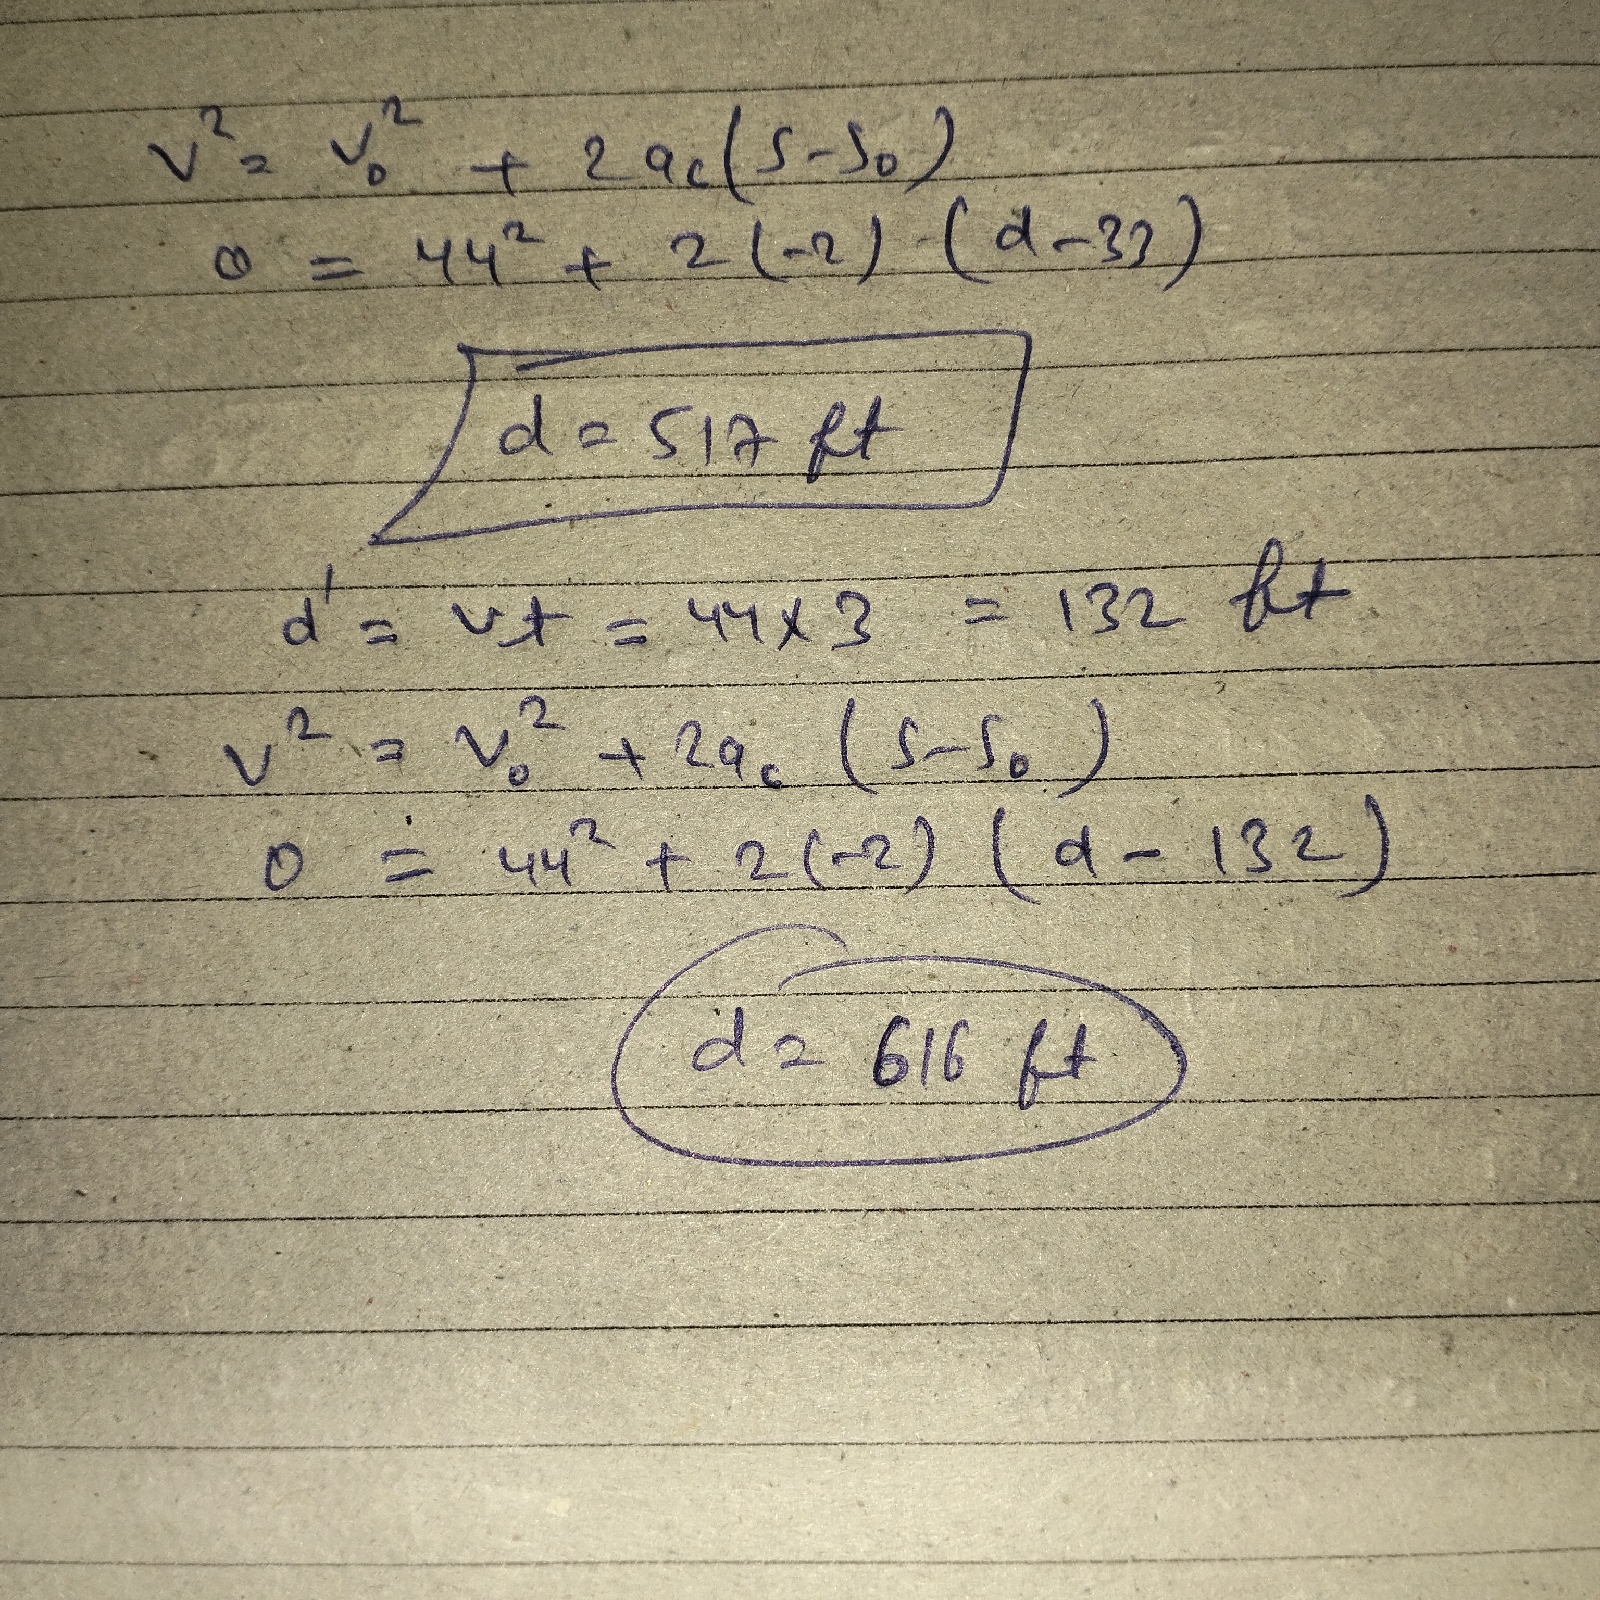 v² = v₀² + 2a_c(S-S₀)
0 = 44² + 2(-2) (d-33)
d = 517 ft
d' = vt = 44x3 = 132 ft
v² = v₀² + 2a_c (S-S₀)
0 = 44² + 2(-2) (d - 132)
d = 616 ft